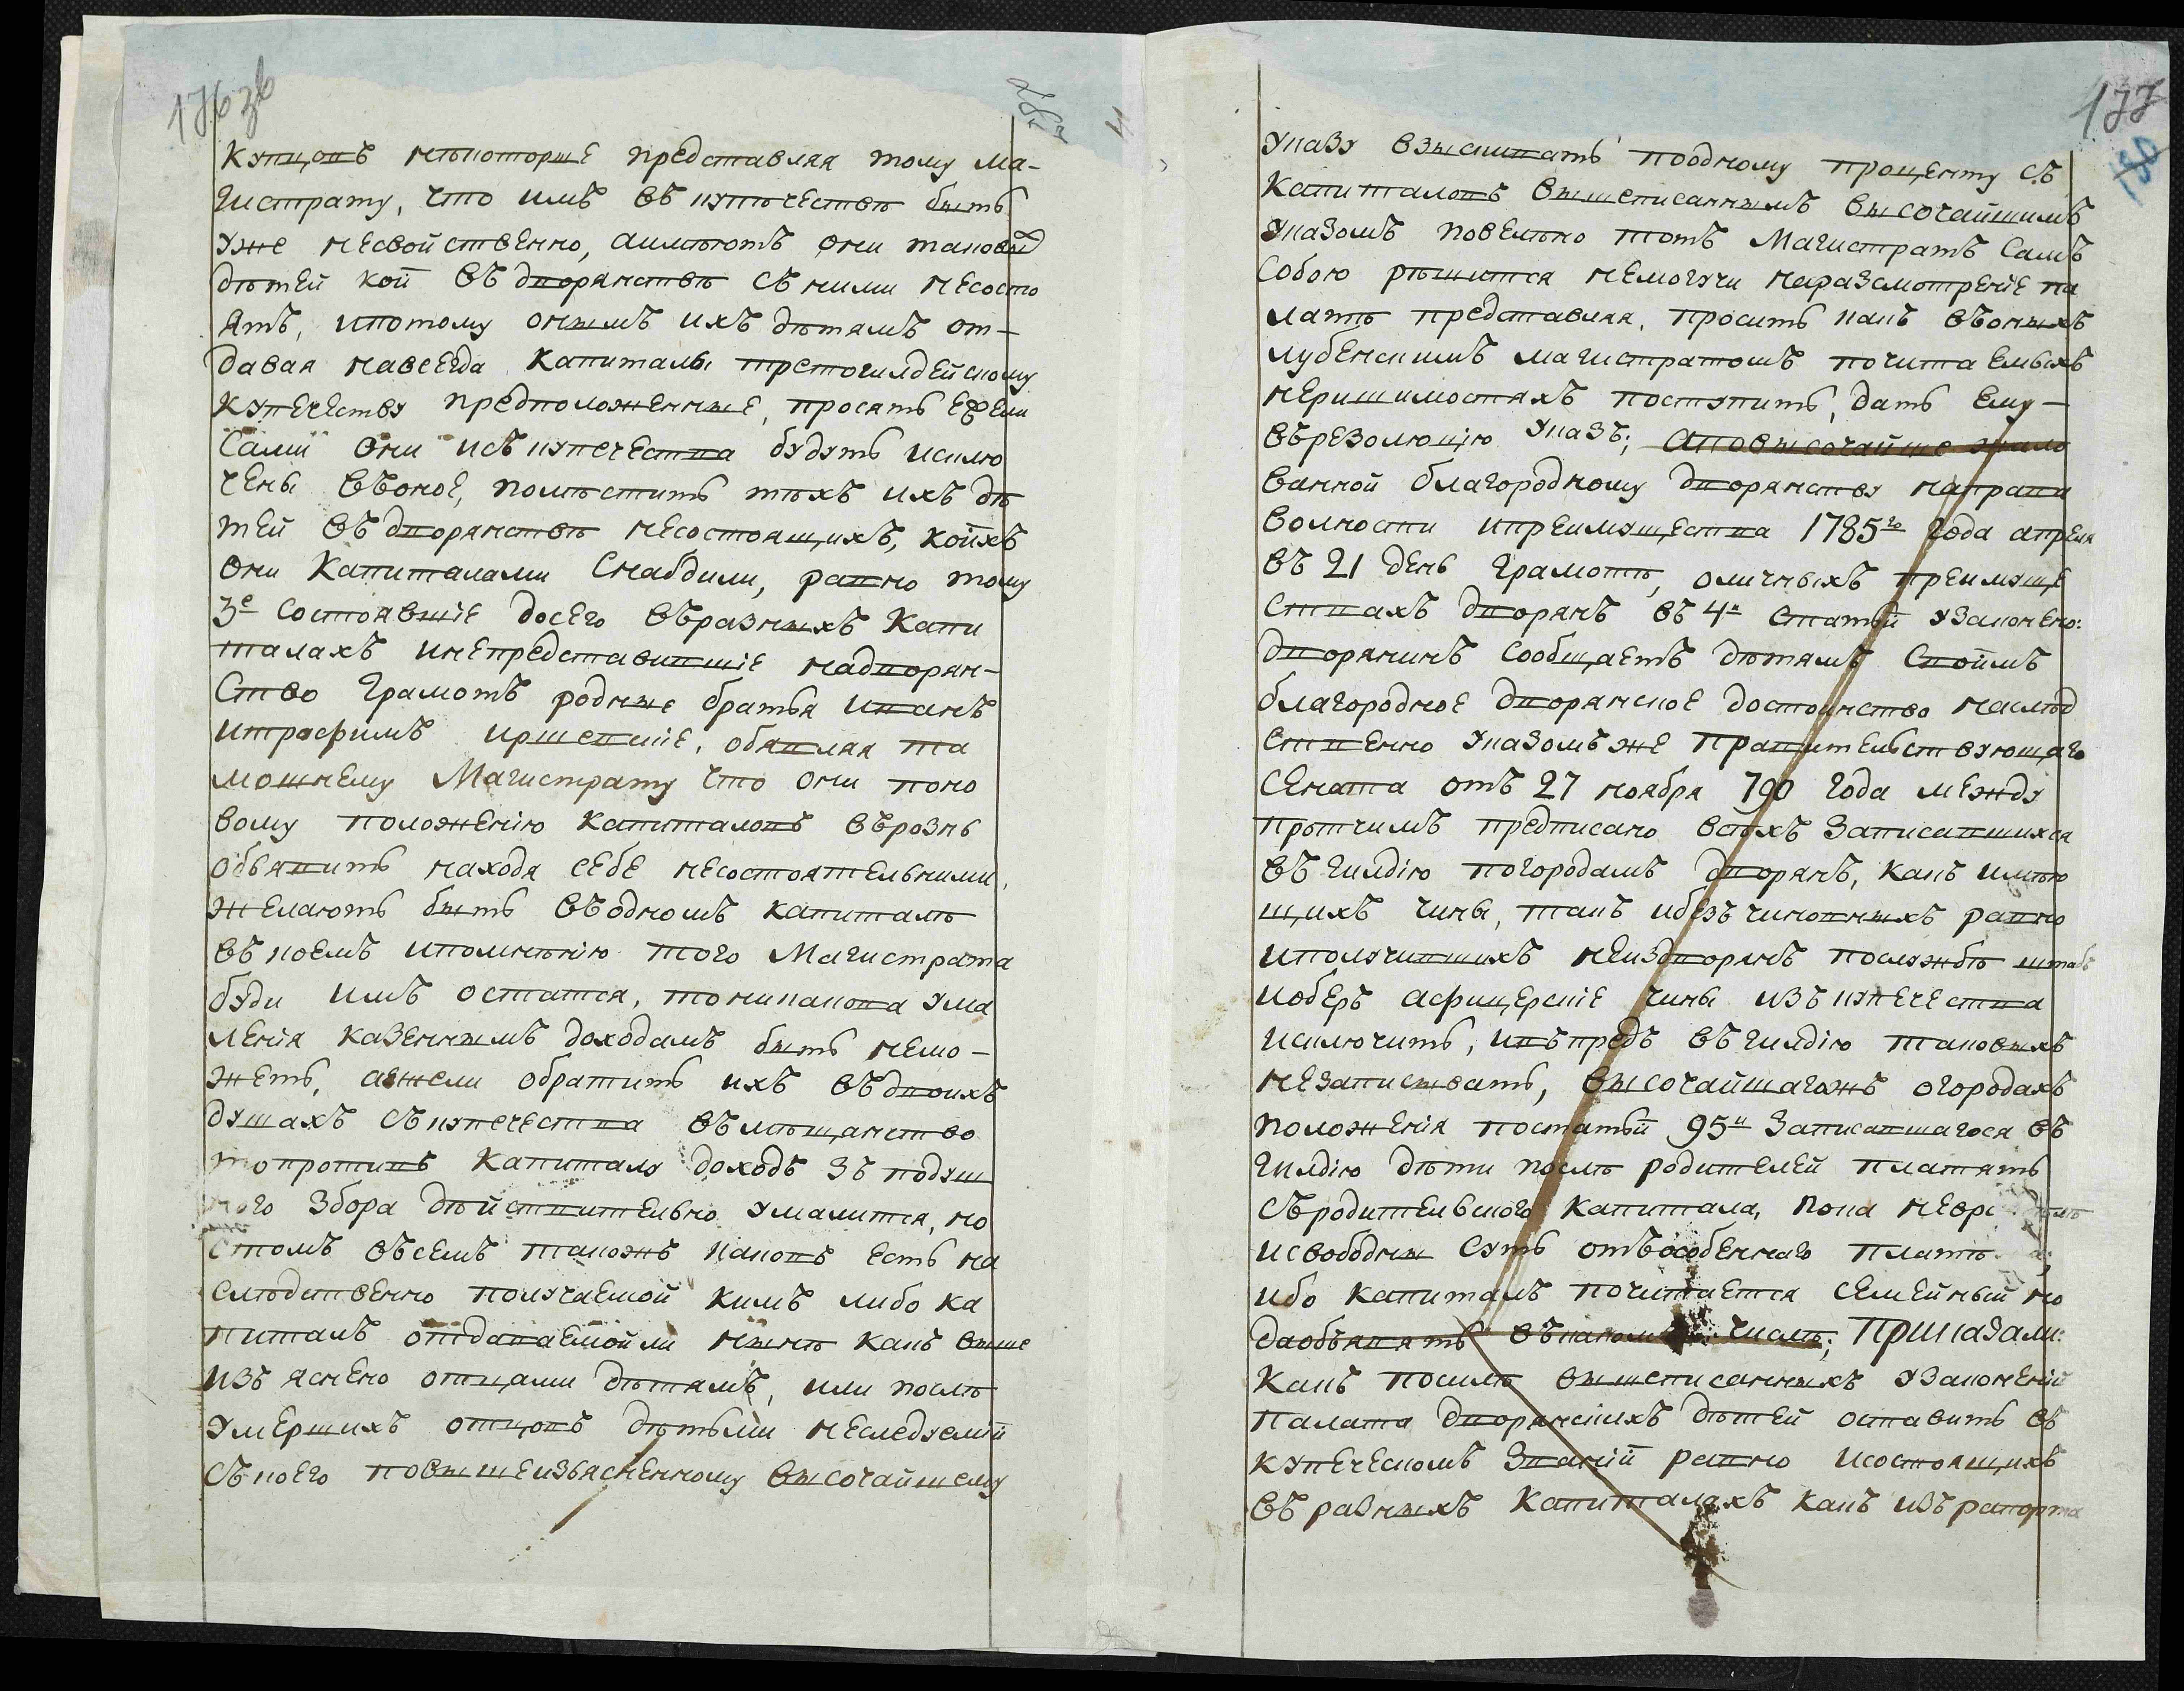 176 зв
купцовъ нѣкоторые представляя тому ма-
гистрату, что имъ въ купѣчествѣ быть
уже несвойственно, аимѣютъ они таковыхъ
дѣтей кои въ дворянствѣ съ ними несосто
ятъ, ипотому онымъ ихъ дѣтямъ от-
давая навсегда капиталы третогилдейскому
купечеству предположенные, просятъ ежели
сами они исъ купечества будутъ исклю
чены въоное, помѣстить тѣхъ ихъ дѣ
тей въ дворянствѣ несостоящихъ, коихъ
они капиталами снабдили, равно тому
3е состоявшіе досего въразныхъ капи
талахъ инепредставившіе надворян-
ство грамотъ родные братья иванъ
итрофимъ иршевскіе, обявляя та
мошнему Магистрату что они поно
вому положенію капиталовъ врознь
объявить находя себе несостоятельними,
желаютъ быть въодномъ капиталѣ
въ коемъ ипомнѣнію того Магистрата
буди имъ остатся, то никакова ума
ленія казеннымъ доходамъ быть немо-
жетъ, аежели обратить ихъ въ двоихъ
душахъ съ купечества въ мѣщанство
то противъ капиталу доходъ зъ подуш
ного збора дѣйствительно умалится, но
стомъ въсемъ такожъ каковъ есть на
слѣдственно получаемой кимъ либо ка
питалъ отдаваемой ли нынѣ какъ выше
изъ яснено отцами дѣтямъ, или послѣ
умершихъ отцовъ дѣтьми неследземій
съ коего повышеизъясненному высочайшему
177
указу взыскивать поодному проценту съ
капиталовъ вышеписаннымъ высочайшимъ
указомъ повелѣно тотъ Магистратъ самъ
собою рѣшится немогучи наразсмотреніе па
латѣ представляя, проситъ какъ въоныхъ
лубенскимъ магистратомъ почитаемыхъ
неришимостяхъ поступить, дать ему-
върезолюцію указъ; аповысочайше жало
ванной благородному дворянству направа
волности ипреимущества 1785го года апреля
въ 21 день грамотѣ, оличныхъ преимуще
ствахъ дворянъ въ 4й статьи узаконено:
дворянинъ сообщаетъ дѣтямъ своимъ
благородное дворянское достоинство наслѣд
ственно указомъ же правительствующаго
сената отъ 27 ноября 790 года между
протчимъ предписано всѣхъ записавшихся
въ гилдію погородамъ дворянъ, какъ имѣю
щихъ чины, такъ ибезъ чиновныхъ равно
иполучившихъ неиздворянъ послужбѣ штабъ
иоберъ афицерскіе чины изъ купечества
исключить, ивъпредъ въ гилдію таковыхъ
незаписывать, высочайшагожъ огородахъ
положенія постатьи 95й записавшагося въ
гилдію дѣти послѣ родителей платятъ
съродительского капитала, пока невро
исвободны суть отъособенного платѣ
ибо капиталъ почитается семейный но
даобъявятъ въкакомъ числѣ; Приказали:
какъ посилѣ вышеписанныхъ узаконеній
палата дворянскихъ дѣтей оставить въ
купеческомъ званій равно исостоящихъ
въ разныхъ капиталахъ какъ изъ рапорта